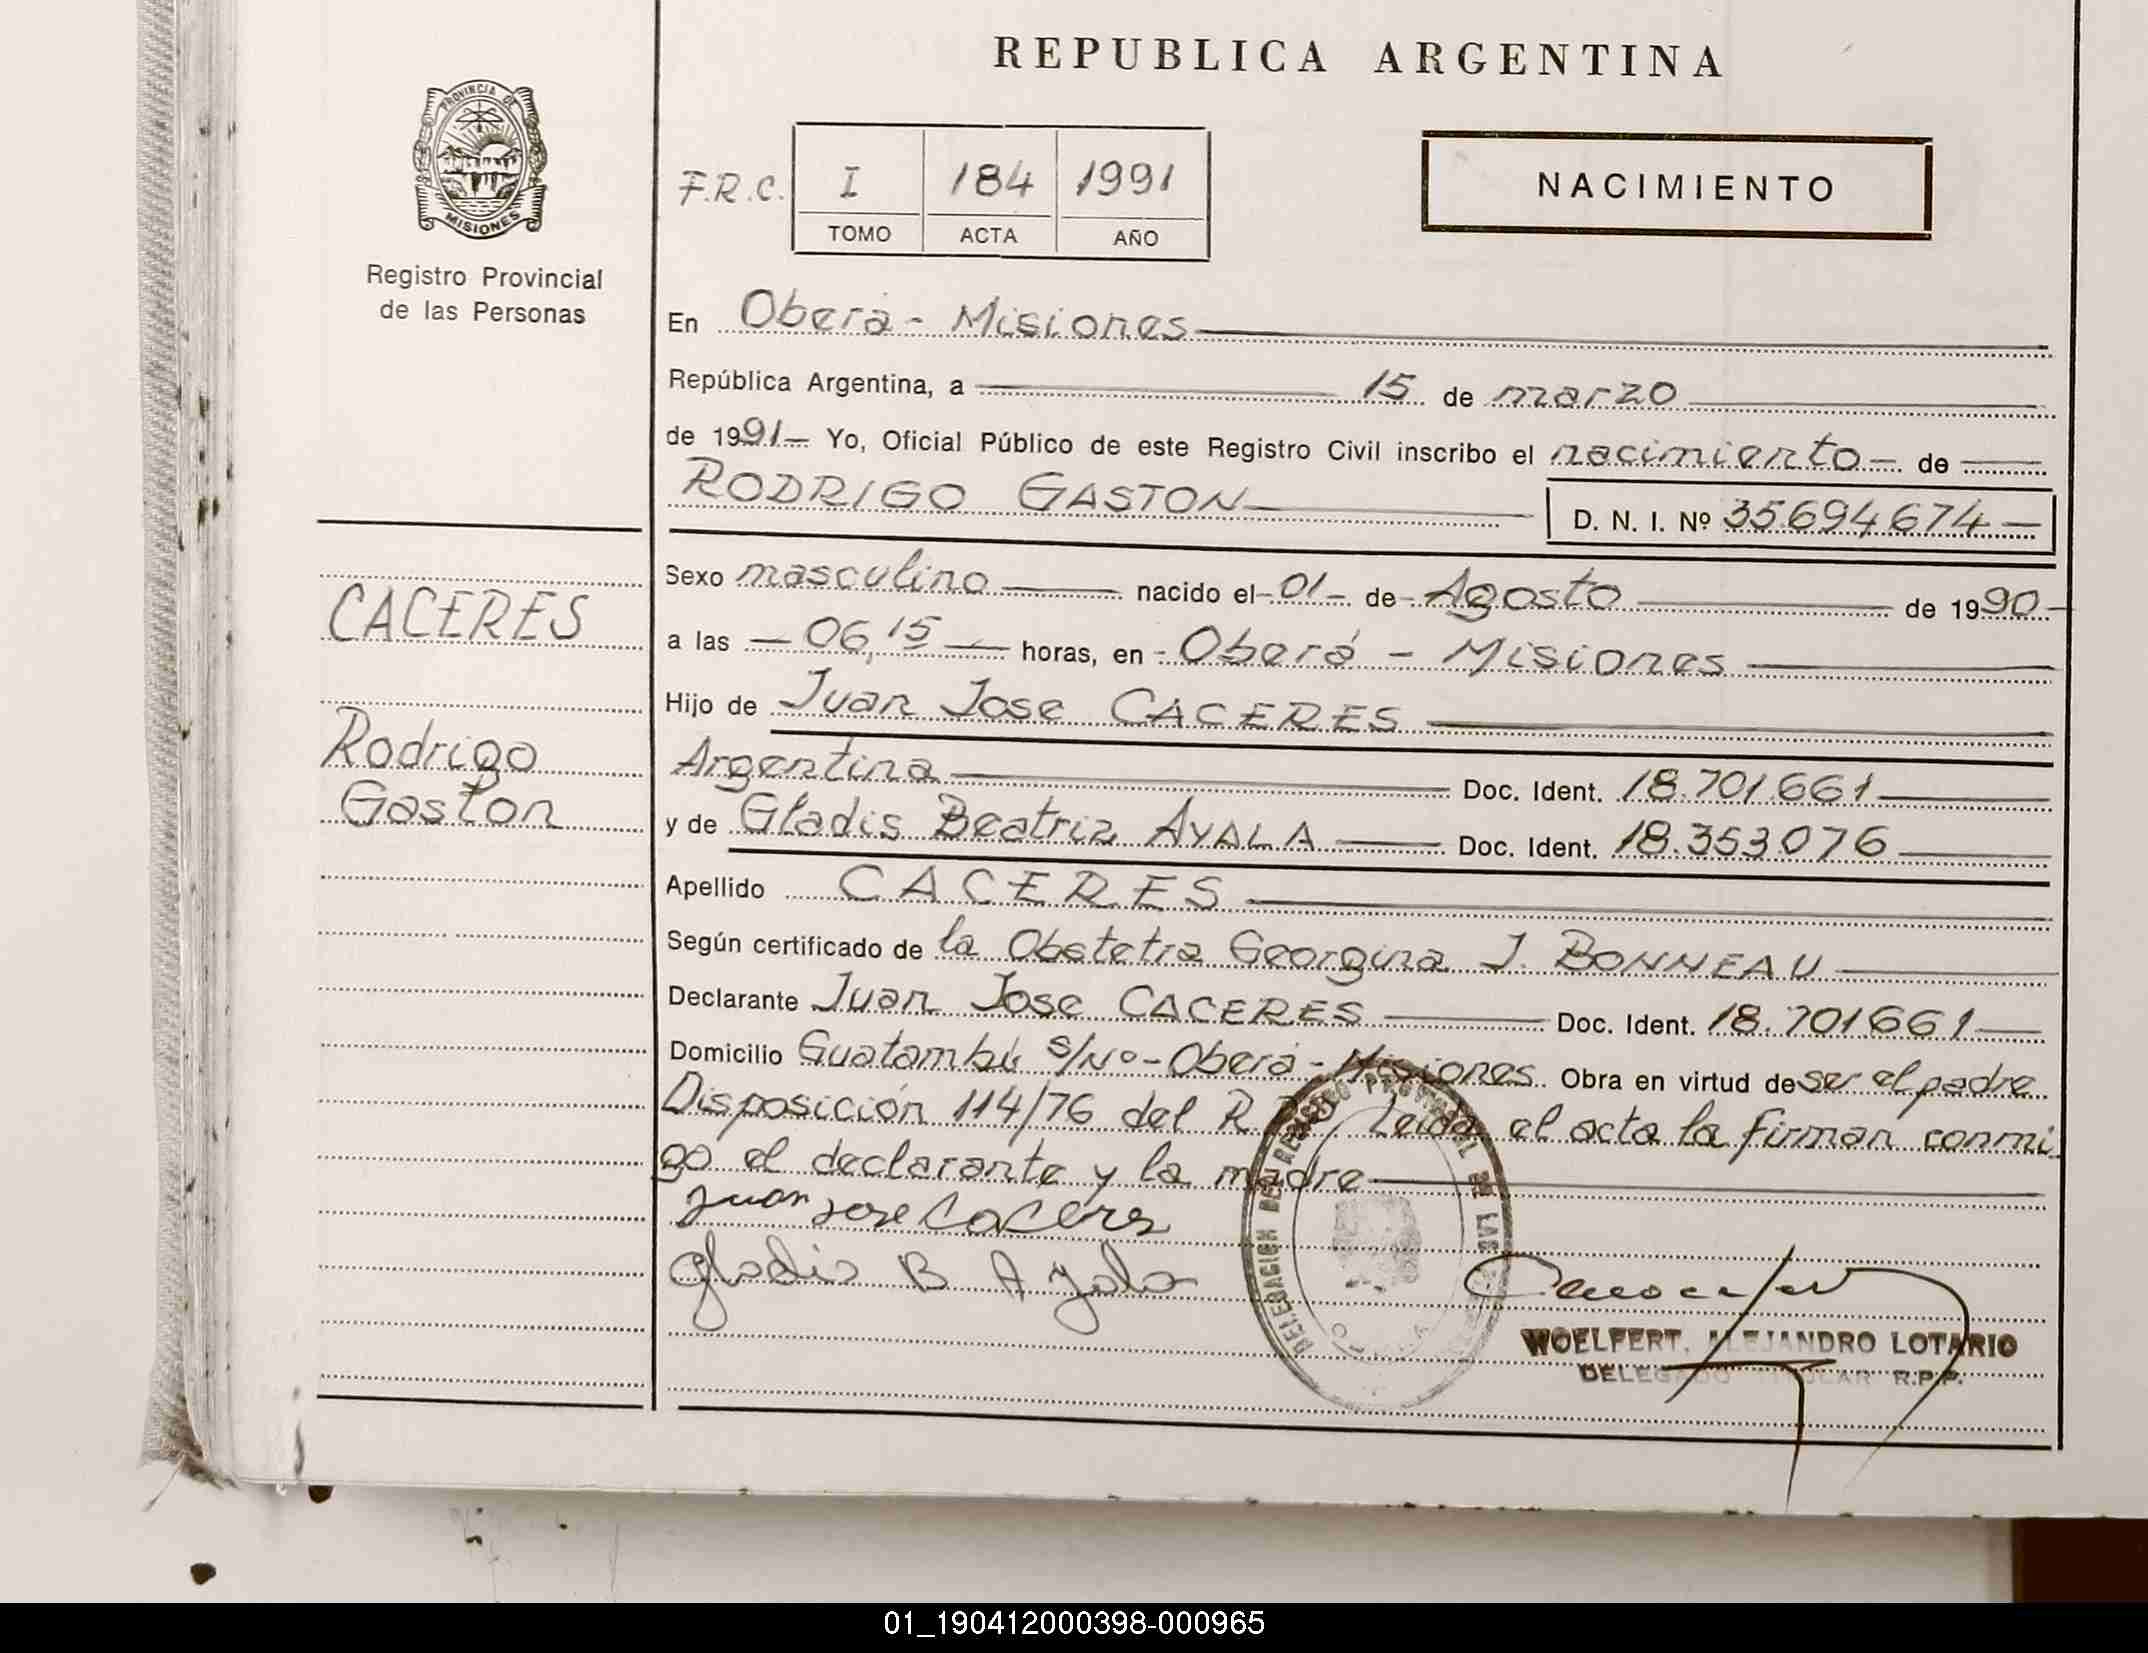 REPUBLICA ARGENTINA
PROVINCIA DE
MISIONES
Registro Provincial
de las Personas
F.R.C.
I 184 1991
TOMO ACTA AÑO
NACIMIENTO
En Oberá - Misiones
República Argentina, a 15 de marzo
de 1991 Yo, Oficial Público de este Registro Civil inscribo el nacimiento de
RODRIGO GASTON D. N. I. Nº 35694674
CACERES
Rodrigo
Gaston
Sexo masculino nacido el 01 de Agosto de 1990
a las 06,15 horas, en Oberá - Misiones
Hijo de Juan Jose CACERES
Argentina Doc. Ident. 18.701.661
y de Gladis Beatriz AYALA Doc. Ident. 18.353076
Apellido CACERES
Según certificado de la Obstetra Georgina J. BONNEAU
Declarante Juan Jose CACERES Doc. Ident. 18.701661
Domicilio Guatambú s/Nº - Oberá - Misiones Obra en virtud de ser el padre
Disposición 114/76 del R.P.P. Leída el acta la firman conmi
go el declarante y la madre
Juan Jose Caceres
Gladis B Ayala
DELEGACION DEL REGISTRO PROVINCIAL DE LAS
WOELFERT, ALEJANDRO LOTARIO
DELEGADO TITULAR R.P.P.
01_190412000398-000965